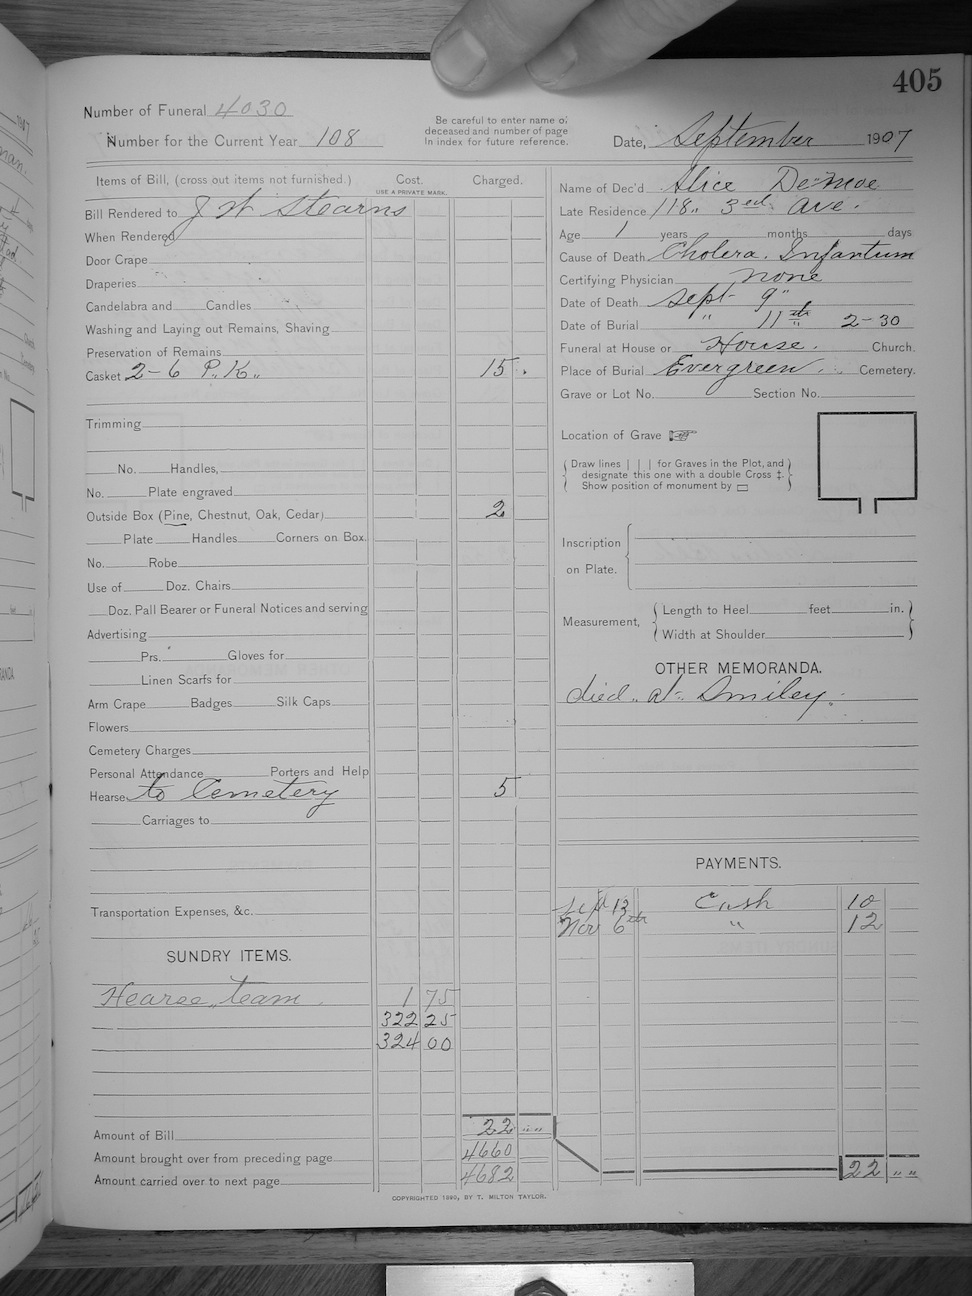 405
Number of Funeral 4030
Number for the Current Year 108
Be careful to enter name of
deceased and number of page
In index for future reference.
Date, September 1907
Items of Bill, (cross out items not furnished.) Cost. Charged.
USE A PRIVATE MARK.
Bill Rendered to J W Stearns
When Rendered
Door Crape
Draperies
Candelabra and Candles
Washing and Laying out Remains, Shaving
Preservation of Remains
Casket 2-6 P.K. 15
Trimming
No. Handles,
No. Plate engraved
Outside Box (Pine, Chestnut, Oak, Cedar) 2
Plate Handles Corners on Box.
No. Robe
Use of Doz. Chairs
Doz. Pall Bearer or Funeral Notices and serving
Advertising
Prs. Gloves for
Linen Scarfs for
Arm Crape Badges Silk Caps
Flowers
Cemetery Charges
Personal Attendance Porters and Help
Hearse to Cemetery 5
Carriages to
Transportation Expenses, &c.
SUNDRY ITEMS.
Hearse, team 1 75
322 25
324 00
Amount of Bill 22 ""
Amount brought over from preceding page 4660
Amount carried over to next page 4682
Name of Dec'd Alice DeMoe
Late Residence 118" 3rd Ave.
Age 1 years months days
Cause of Death Cholera Infantum
Certifying Physician none
Date of Death Sept 9"
Date of Burial " 11th 2-30
Funeral at House or House. Church.
Place of Burial Evergreen Cemetery.
Grave or Lot No. Section No.
Location of Grave ☞
Draw lines | | | for Graves in the Plot, and
designate this one with a double Cross ‡.
Show position of monument by ▭
Inscription
on Plate.
Measurement, Length to Heel feet in.
Width at Shoulder
OTHER MEMORANDA.
died at Smiley.
PAYMENTS.
Sept 13 Cash 10
Nov 6th " 12
22 " "
COPYRIGHTED 1890, BY T. MILTON TAYLOR.